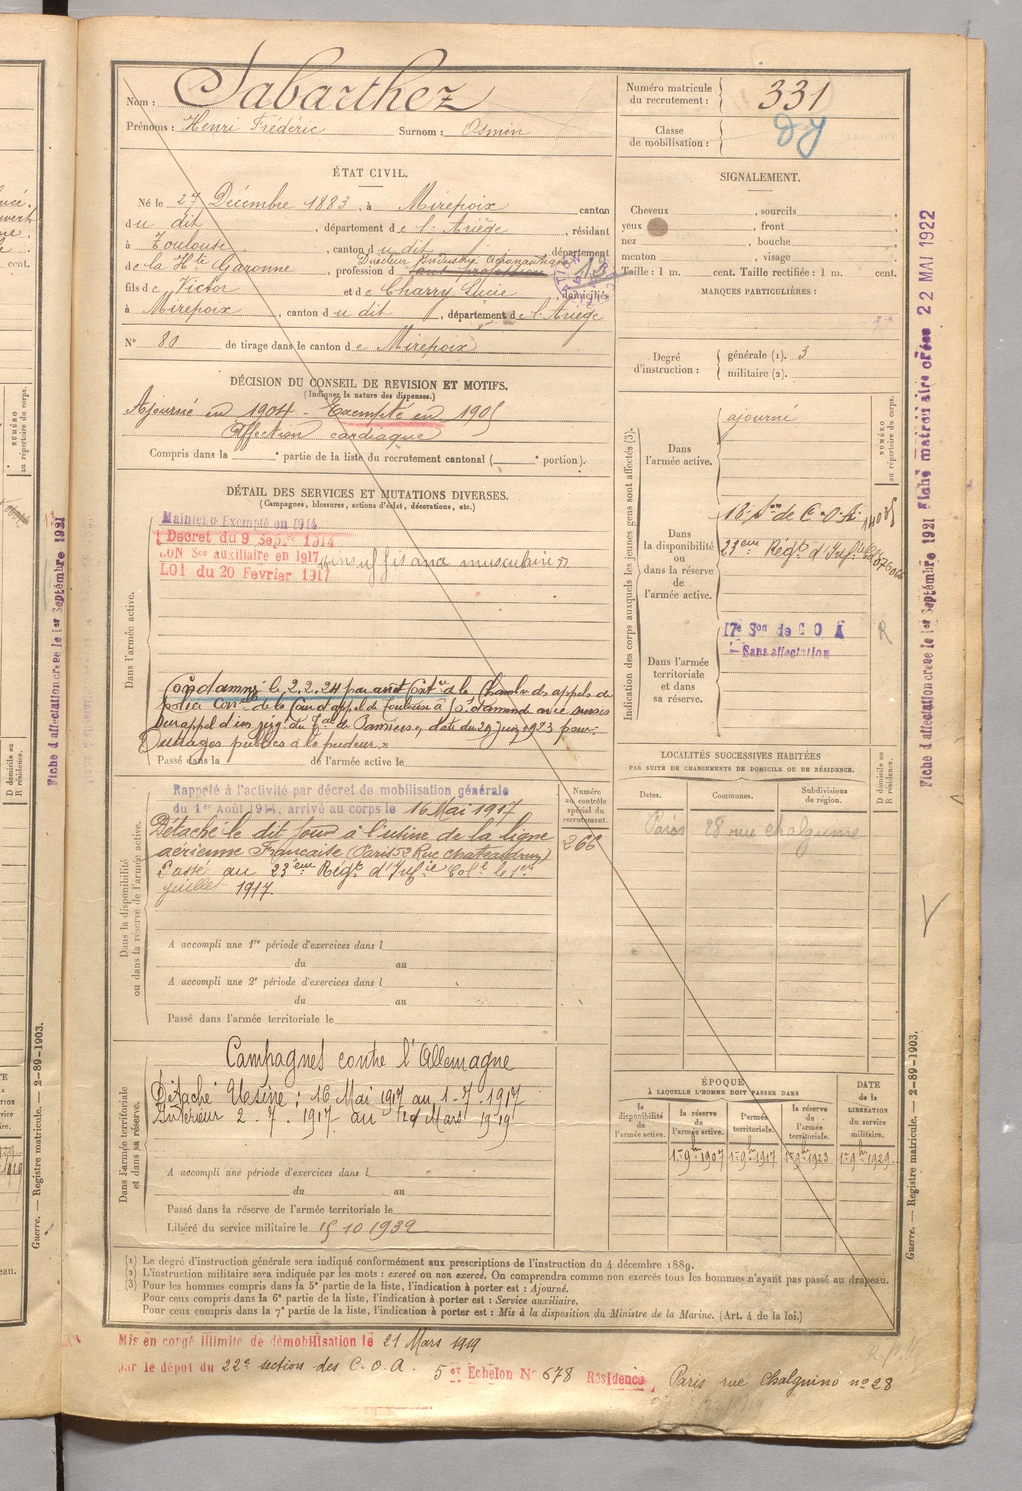 Nom : Sabarthez
Prénoms : Henri Frédéric Surnom : Osmin
Numéro matricule du recrutement : 331
Classe de mobilisation :
ÉTAT CIVIL.
Né le 27 Décembre 1883, à Mirepoix canton
du dit, département de l'Ariège, résidant
à Toulouse, canton du dit département
Directeur Industrie Aéronautique
de la Hte Garonne, profession d sans profession
fils de Victor et de Charry Lucie, domiciliés
à Mirepoix, canton du dit, département de l'Ariège
N° 80 de tirage dans le canton de Mirepoix
SIGNALEMENT.
Cheveux , sourcils ,
yeux , front ,
nez , bouche ,
menton , visage
Taille : 1 m. cent. Taille rectifiée : 1 m. cent.
MARQUES PARTICULIÈRES :
Degré d'instruction : générale (1). 3
militaire (2).
DÉCISION DU CONSEIL DE REVISION ET MOTIFS.
(Indiquer la nature des dispenses.)
Ajourné en 1904 - Exempté en 1905
Affection cardiaque
Compris dans la e partie de la liste du recrutement cantonal ( e portion).
DÉTAIL DES SERVICES ET MUTATIONS DIVERSES.
(Campagnes, blessures, actions d'éclat, décorations, etc.)
Dans l'armée active.
Maintenu Exempté en 1914
Décret du 9 Septre 1914
BON Sce auxiliaire en 1917 "insuffisance musculaire"
LOI du 20 Février 1917
Condamné le 2.2.24 par arrêt Contre de la Chambre des appels de
police Corlle de la Cour d'appel de Toulouse à d'amende avec sursis
sur appel d'un jugt du Tal de Pamiers, date du 29 juin 1923 pour
"Outrages publics à la pudeur"
Passé dans la de l'armée active le
Indication des corps auxquels les jeunes gens sont affectés (3).
NUMÉRO au répertoire du corps.
Dans l'armée active. ajourné
Dans la disponibilité ou dans la réserve de l'armée active.
18e Son de C.O.A.
23eme Régt d'Infie Cole
Dans l'armée territoriale et dans sa réserve.
17e Son de C O A
Sans affectation
LOCALITÉS SUCCESSIVES HABITÉES
PAR SUITE DE CHANGEMENTS DE DOMICILE OU DE RÉSIDENCE.
Dates. Communes. Subdivisions de région. D domicile ou R résidence.
Paris 28 rue chalgrin
Dans la disponibilité ou dans la réserve de l'armée active.
Rappelé à l'activité par décret de mobilisation générale
du 1er Août 1914, arrivé au corps le 16 Mai 1917
Détaché le dit jour à l'usine de la ligne
aérienne Française (Paris 52 Rue chateaudun)
Passé au 23eme Régt d'Infie Cole le 1er
juillet 1917.
Numéro au contrôle spécial du recrutement.
266
A accompli une 1re période d'exercices dans l
du au
A accompli une 2e période d'exercices dans l
du au
Passé dans l'armée territoriale le
Dans l'armée territoriale et dans sa réserve.
Campagnes contre l'Allemagne
Détaché Usine : 16 Mai 1917 au 1-7-1917
Intérieur 2-7-1917 au 21 Mars 1919
A accompli une période d'exercices dans l
du au
Passé dans la réserve de l'armée territoriale le
Libéré du service militaire le 15 10 1932
ÉPOQUE
À LAQUELLE L'HOMME DOIT PASSER DANS
la disponibilité de l'armée active. la réserve de l'armée active. l'armée territoriale. la réserve de l'armée territoriale.
DATE de la LIBÉRATION du service militaire.
1er 9bre 1907 1er 9bre 1917 1er 9bre 1923 1er 9bre 1929
(1) Le degré d'instruction générale sera indiqué conformément aux prescriptions de l'instruction du 4 décembre 1889.
(2) L'instruction militaire sera indiquée par les mots : exercé ou non exercé. On comprendra comme non exercés tous les hommes n'ayant pas passé au drapeau.
(3) Pour les hommes compris dans la 5e partie de la liste, l'indication à porter est : Ajourné.
Pour ceux compris dans la 6e partie de la liste, l'indication à porter est : Service auxiliaire.
Pour ceux compris dans la 7e partie de la liste, l'indication à porter est : Mis à la disposition du Ministre de la Marine. (Art. 4 de la loi.)
Mis en congé illimité de démobilisation le 21 Mars 1919
par le dépôt du 22e section des C.O.A. 5e Echelon N° 678 Résidence Paris rue Chalgrin no 28
Guerre. — Registre matricule. — 2-89-1903.
Fiche d'affectation créée le 1er Septembre 1921
Fiche matriculaire créée 22 MAI 1922
Guerre. — Registre matricule. — 2-89-1903.
Fiche d'affectation créée le 1er Septembre 1921